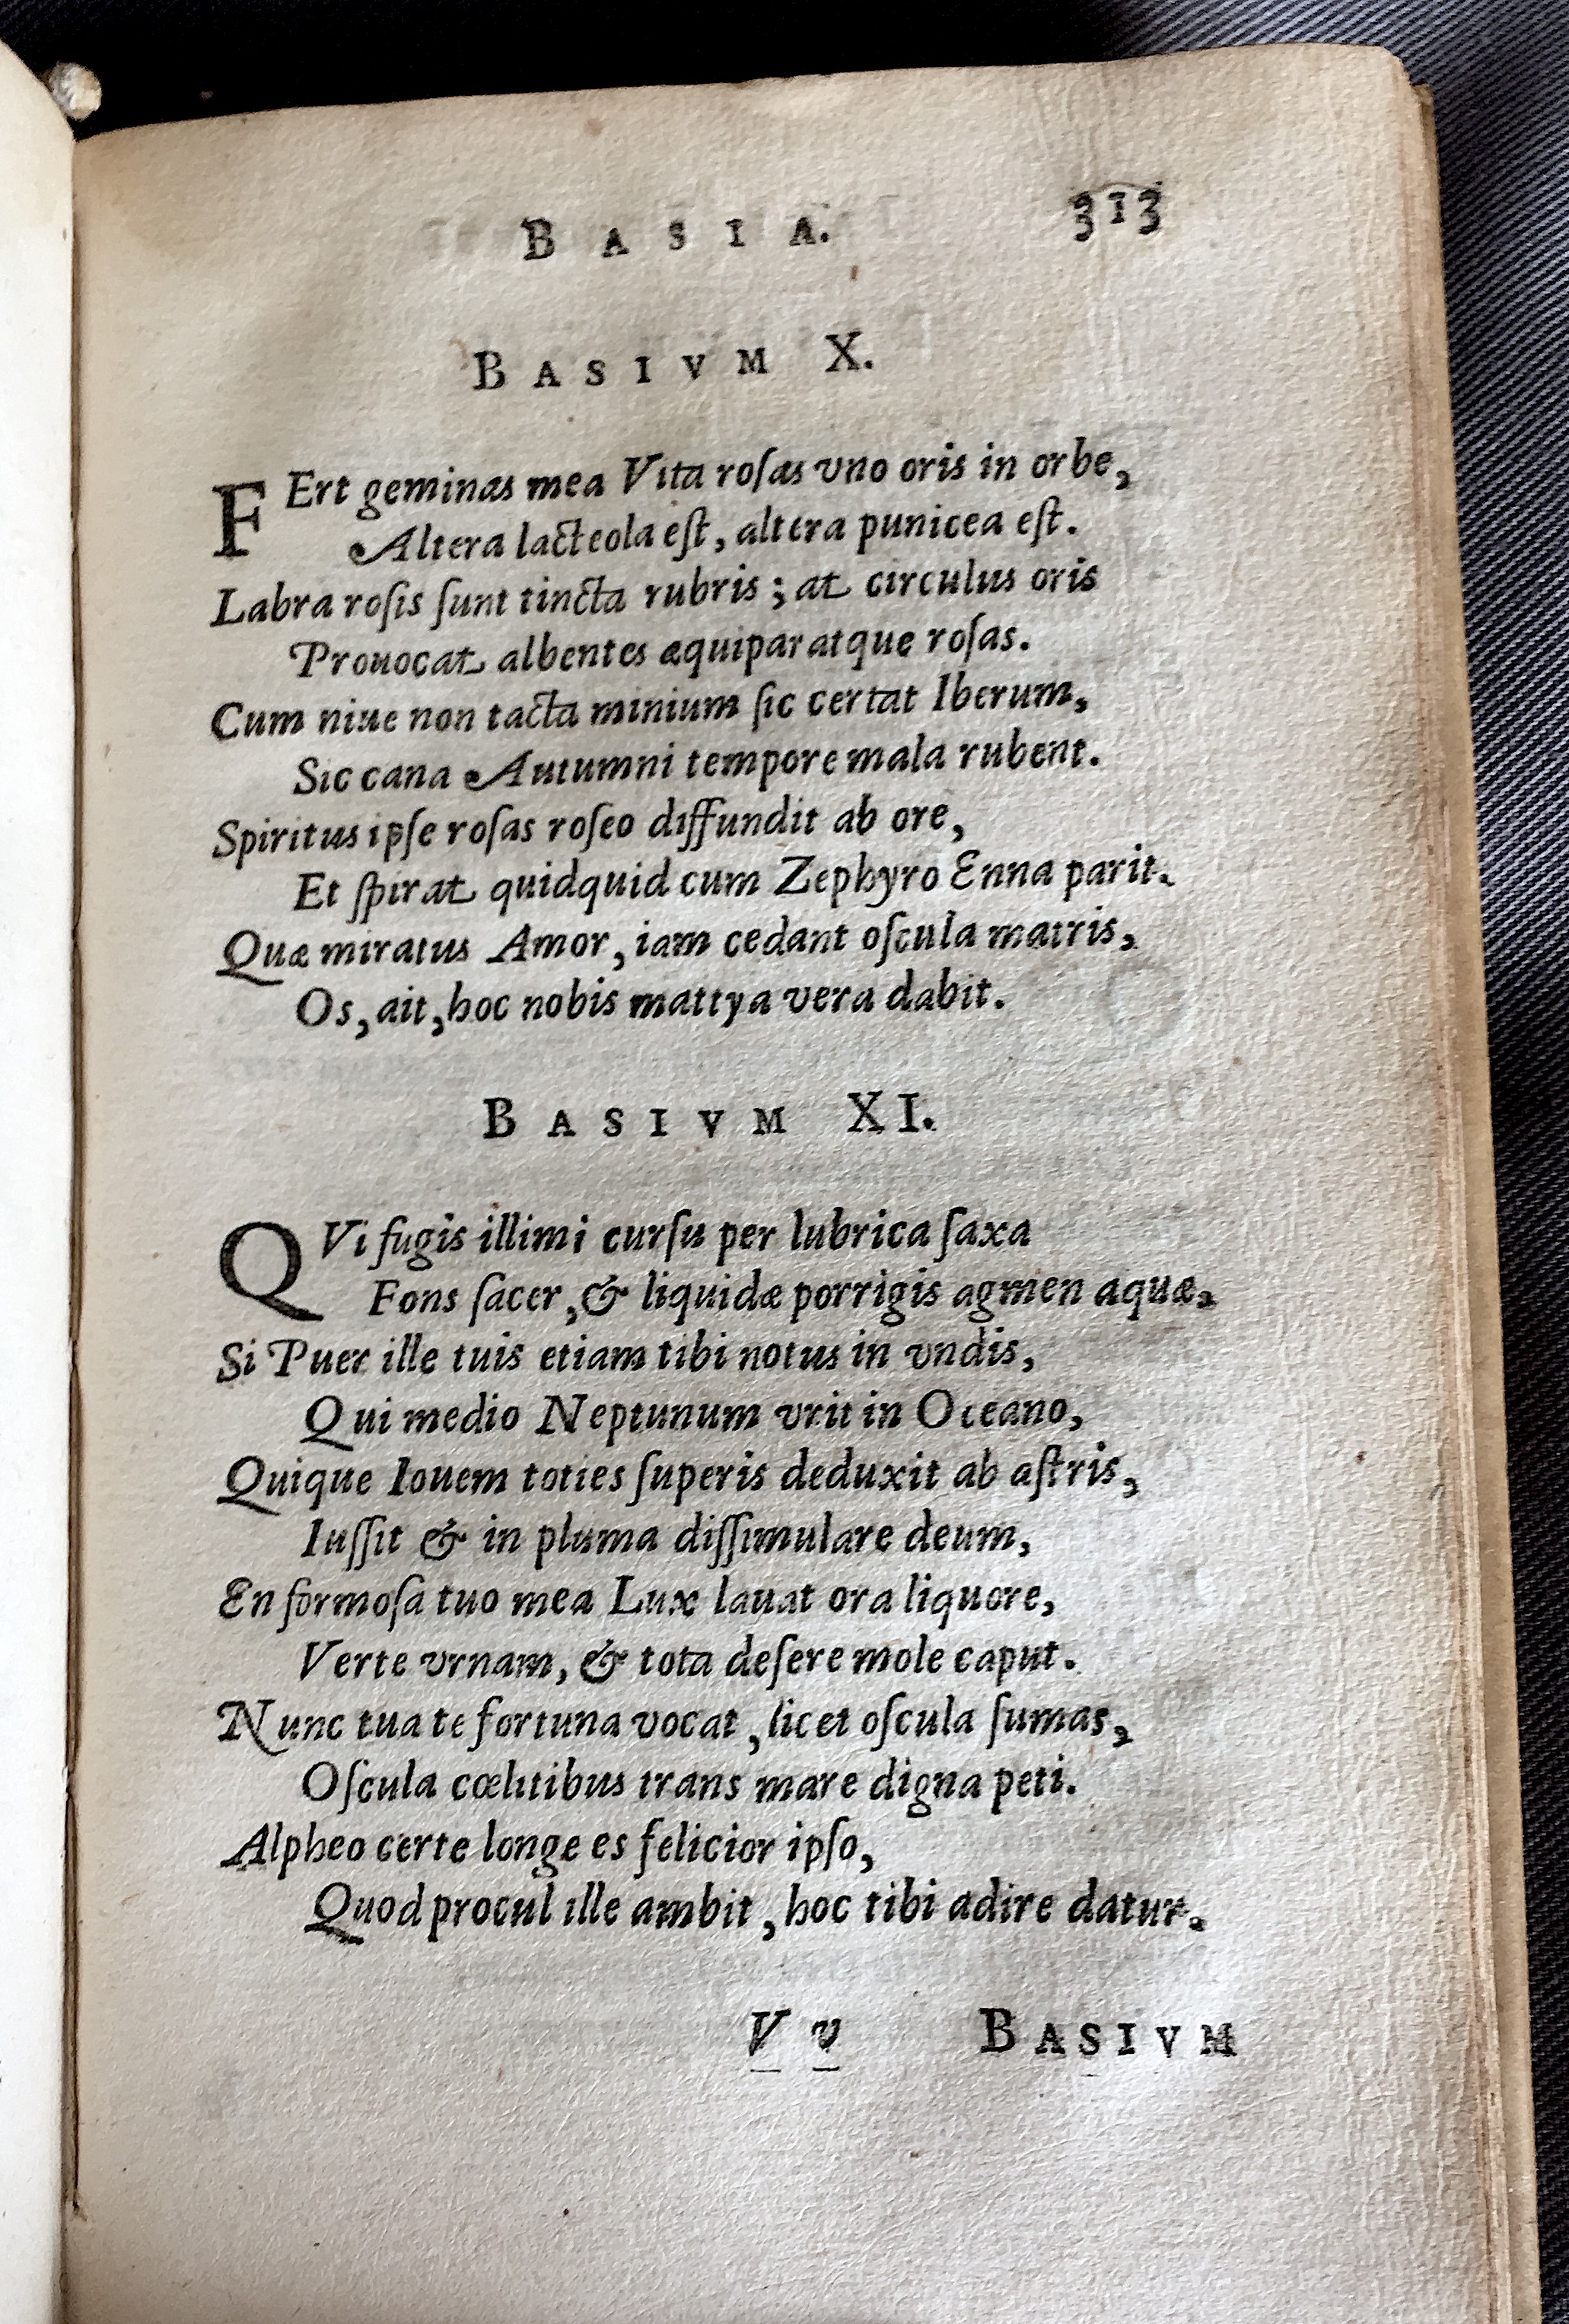 BASIA. 313
BASIVM X.
FErt geminas mea Vita roſas vno oris in orbe,
Altera lacteola eſt, altera punicea eſt.
Labra roſis ſunt tincta rubris; at circulus oris
Prouocat albentes æquiparatque roſas.
Cum niue non tacta minium ſic certat Iberum,
Sic cana Autumni tempore mala rubent.
Spiritus ipſe roſas roſeo diffundit ab ore,
Et ſpirat quidquid cum Zephyro Enna parit.
Quæ miratus Amor, iam cedant oſcula matris,
Os, ait, hoc nobis mattya vera dabit.
BASIVM XI.
QVi fugis illimi curſu per lubrica ſaxa
Fons ſacer, & liquidæ porrigis agmen aquæ,
Si Puer ille tuis etiam tibi notus in vndis,
Qui medio Neptunum vrit in Oceano,
Quique Iouem toties ſuperis deduxit ab aſtris,
Iuſſit & in pluma diſſimulare deum,
En formoſa tuo mea Lux lauat ora liquore,
Verte vrnam, & tota deſere mole caput.
Nunc tua te fortuna vocat, licet oſcula ſumas,
Oſcula cœlitibus trans mare digna peti.
Alpheo certe longe es felicior ipſo,
Quod procul ille ambit, hoc tibi adire datur.
V v BASIVM